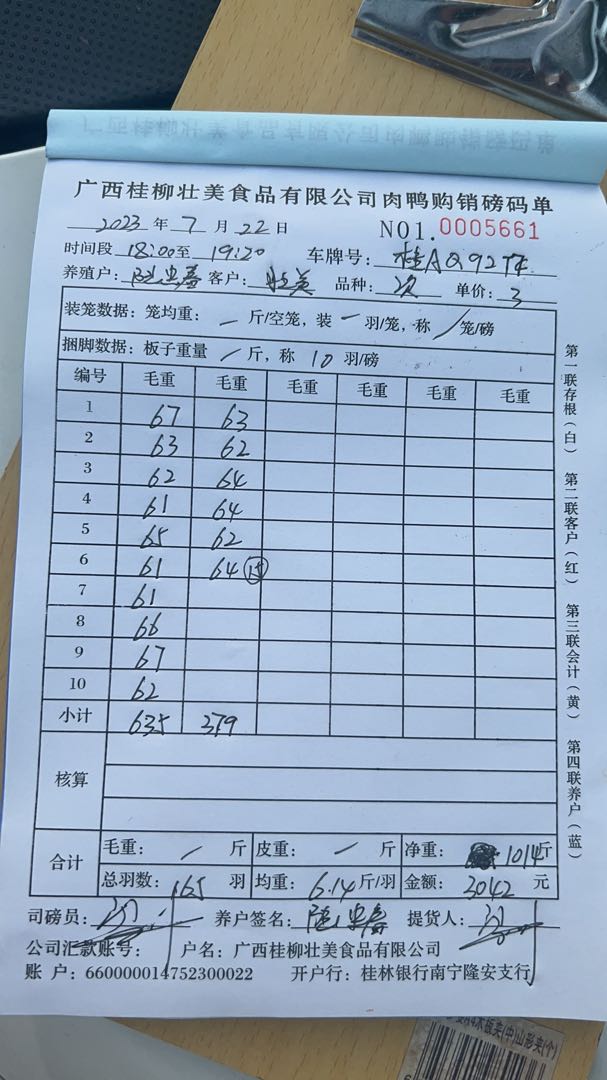 广西桂柳壮美食品有限公司肉鸭购销磅码单
2023 年 7 月 22 日 NO1.0005661
时间段 18:00至 19:20 车牌号: 桂AQ92
养殖户: 客户: 壮美 品种: 次 单价: 3
装笼数据: 笼均重: — 斤/空笼, 装 — 羽/笼, 称 / 笼/磅
捆脚数据: 板子重量 / 斤, 称 10 羽/磅
编号 毛重 毛重 毛重 毛重 毛重 毛重
1 67 63
2 63 62
3 62 64
4 61 64
5 65 62
6 61 64 15
7 61
8 66
9 67
10 62
小计 635 379
核算
合计 毛重: / 斤 皮重: — 斤 净重: 1014斤
总羽数: 165 羽 均重: 6.14 斤/羽 金额: 3042 元
司磅员: 养户签名: 提货人:
公司汇款账号: 户名: 广西桂柳壮美食品有限公司
账 户: 660000014752300022 开户行: 桂林银行南宁隆安支行
第一联存根(白) 第二联客户(红) 第三联会计(黄) 第四联养户(蓝)